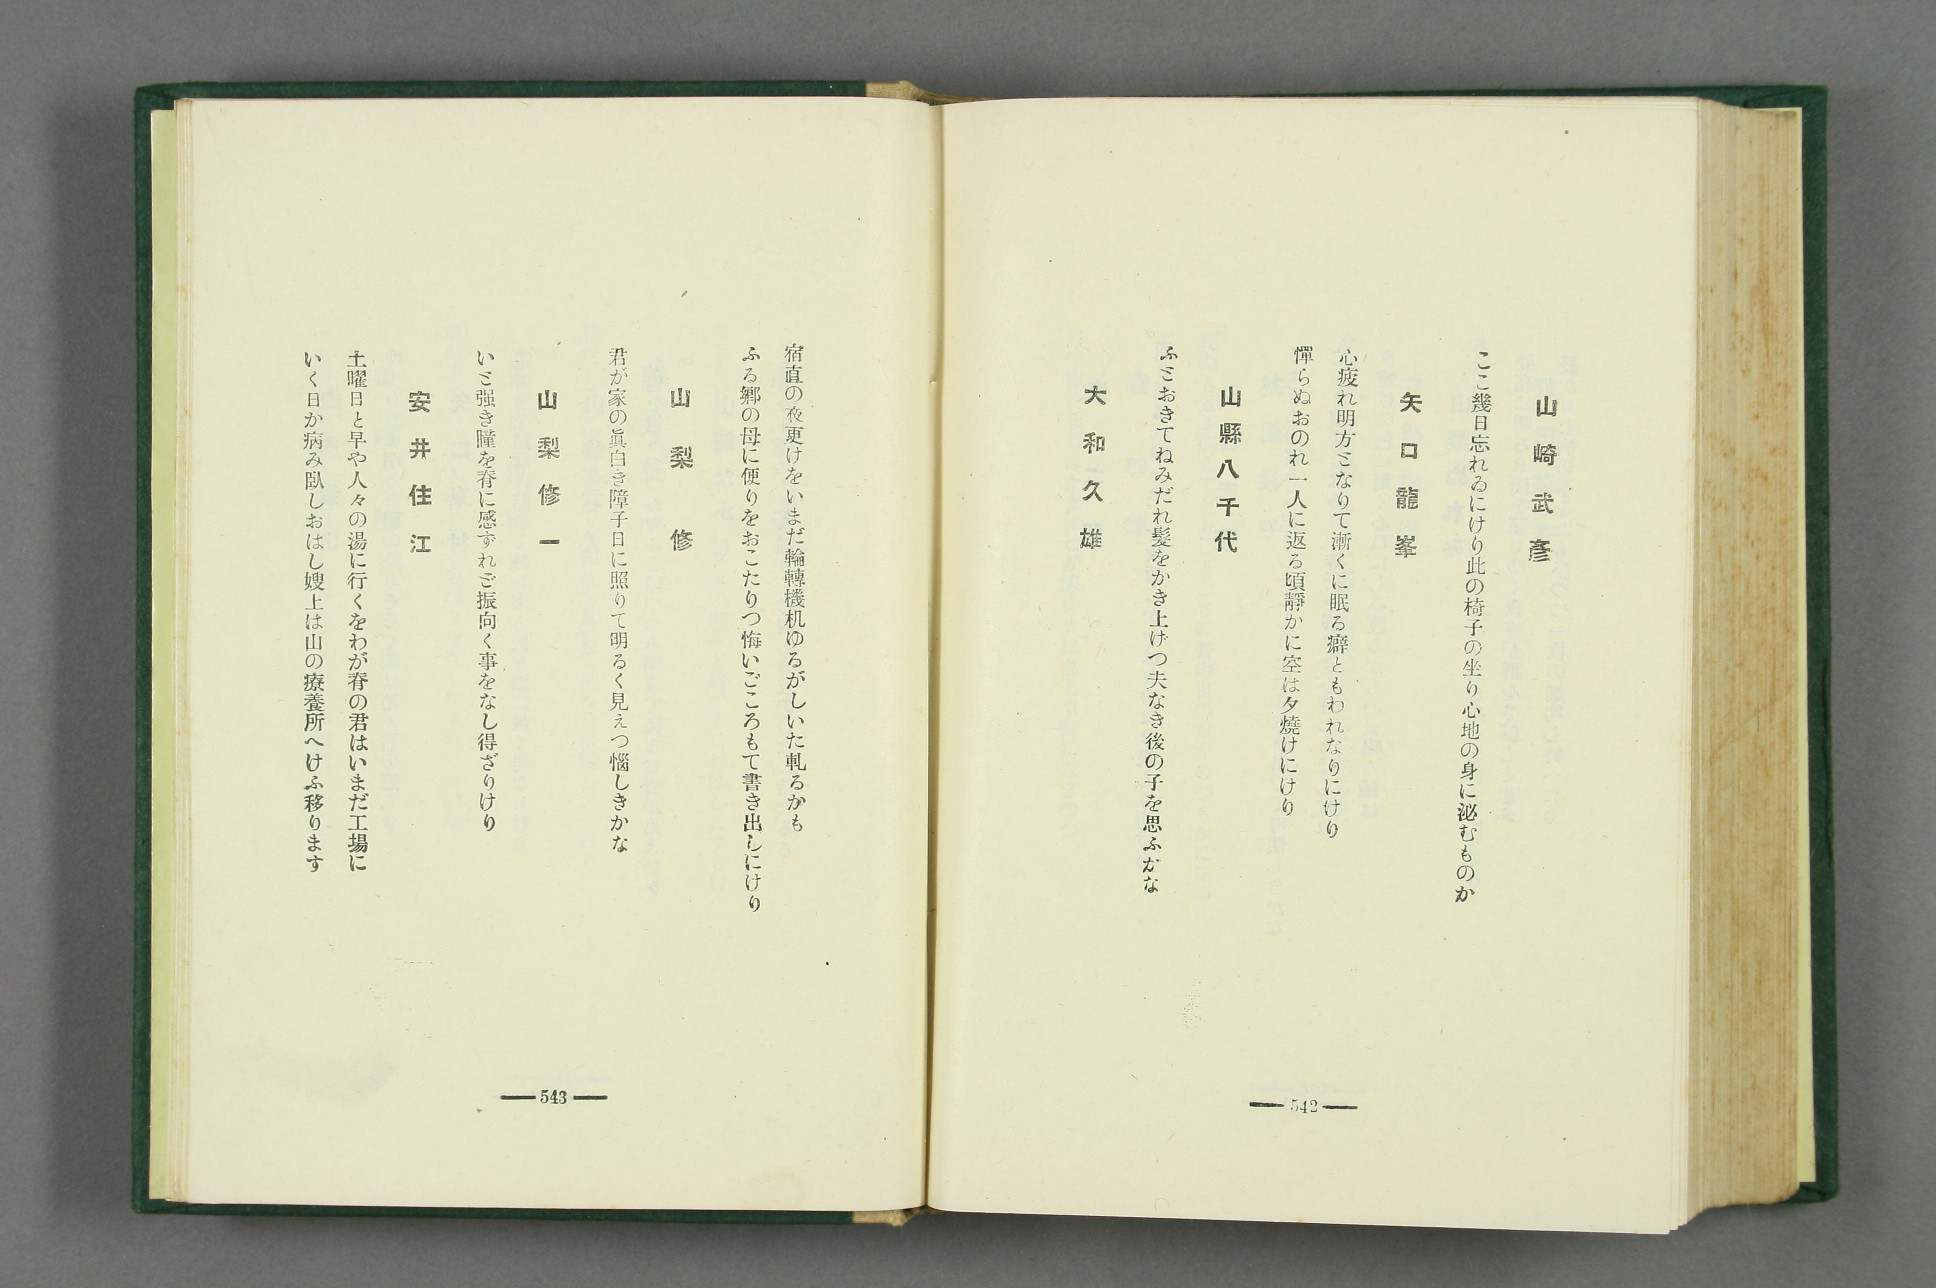 山崎武彥
ここ幾日忘れゐにけり此の椅子の坐り心地の身に泌むものか
矢口龍峯
心疲れ明方となりて漸くに眠る癖ともわれなりにけり
憚らぬおのれ一人に返る頃靜かに空は夕燒けにけり
山縣八千代
ふとおきてねみだれ髮をかき上げつ夫なき後の子を思ふかな
大和久雄
宿直の夜更けをいまだ輪轉機机ゆるがしいた軋るかも
ふる鄕の母に便りをおこたりつ悔いごころもて書き出しにけり
山梨修
君が家の眞白き障子日に照りて明るく見えつ惱しきかな
山梨修一
いと强き瞳を脊に感ずれど振向く事をなし得ざりけり
安井住江
土曜日と早や人々の湯に行くをわが脊の君はいまだ工場に
いく日か病み臥しおはし嫂上は山の療養所へけふ移ります
542
543